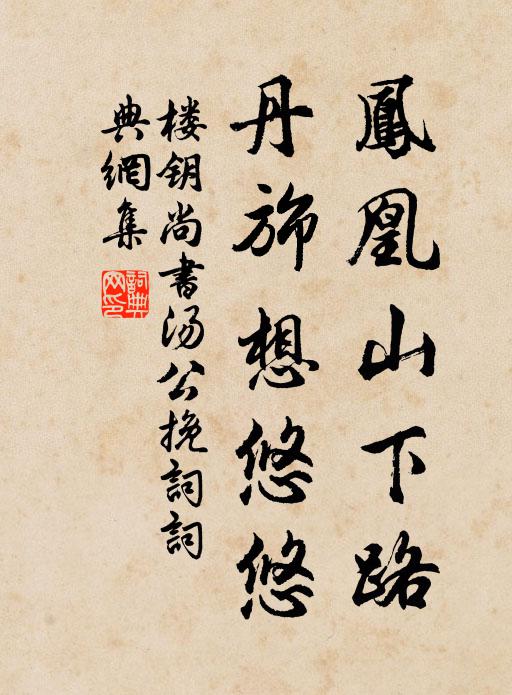 鳳凰山下路
丹旆想悠悠
楼钥尚書汤公挽詞詞
典網集
詞典
网印